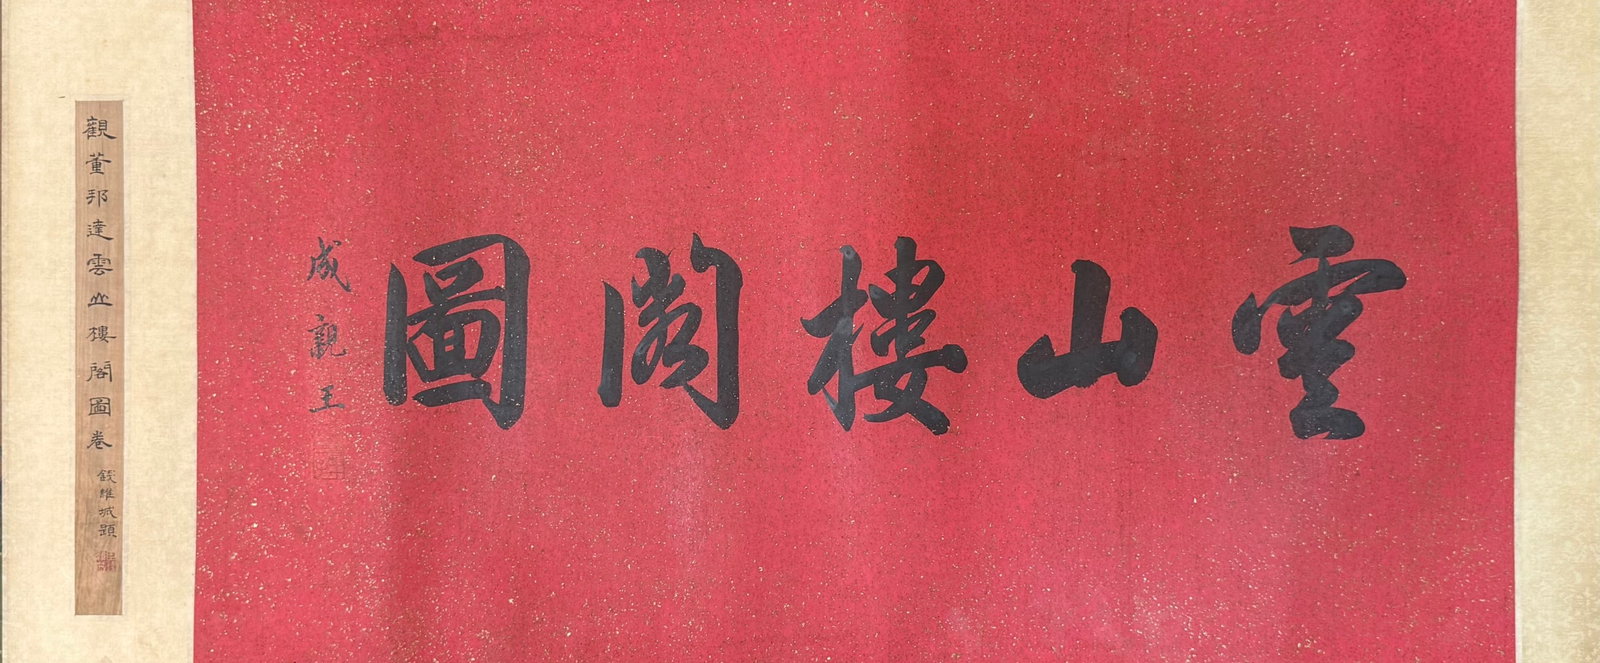 雲山樓閣圖
成親王
觀董邦達雲山樓閣圖卷
錢維城題